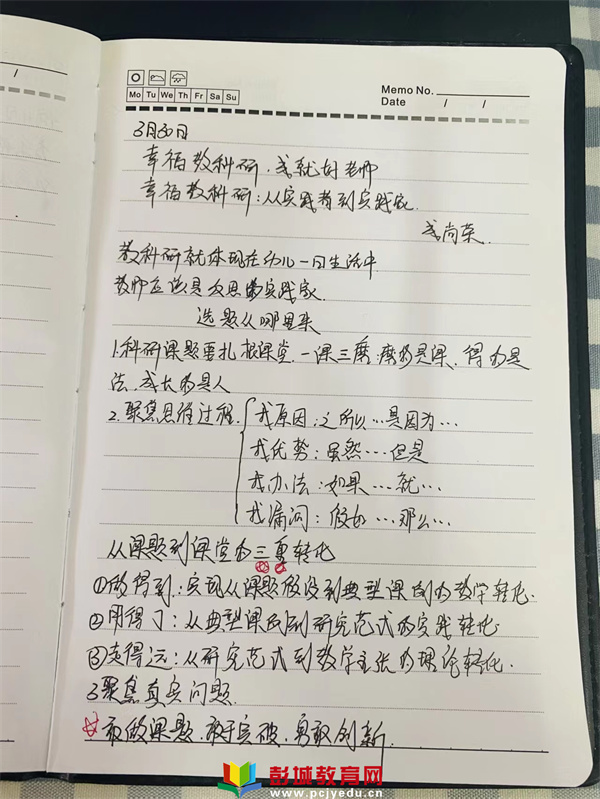 Mo Tu We Th Fr Sa Su
Memo No.
Date / /
3月30日
幸福教科研,成就好老师
幸福教科研:从实践者到实践家
成尚荣
教科研就体现在幼儿一日生活中
教师应该是反思的实践家
选题从哪里来
1.科研课题要扎根课堂.一课三磨:磨的是课、得的是
法、成长的是人
2.聚焦思维过程
找原因:之所以…是因为…
找优势:虽然…但是
找办法:如果…就…
找漏洞:假如…那么…
从课题到课堂的三重转化
①做得到:实现从课题假设到典型课例的教学转化.
②用得了:从典型课例到研究范式的实践转化.
③走得远:从研究范式到教学主张的理论转化.
3.聚焦真实问题.
☆敢做课题、敢于突破、勇敢创新.
彭城教育网
www.pcjyedu.cn